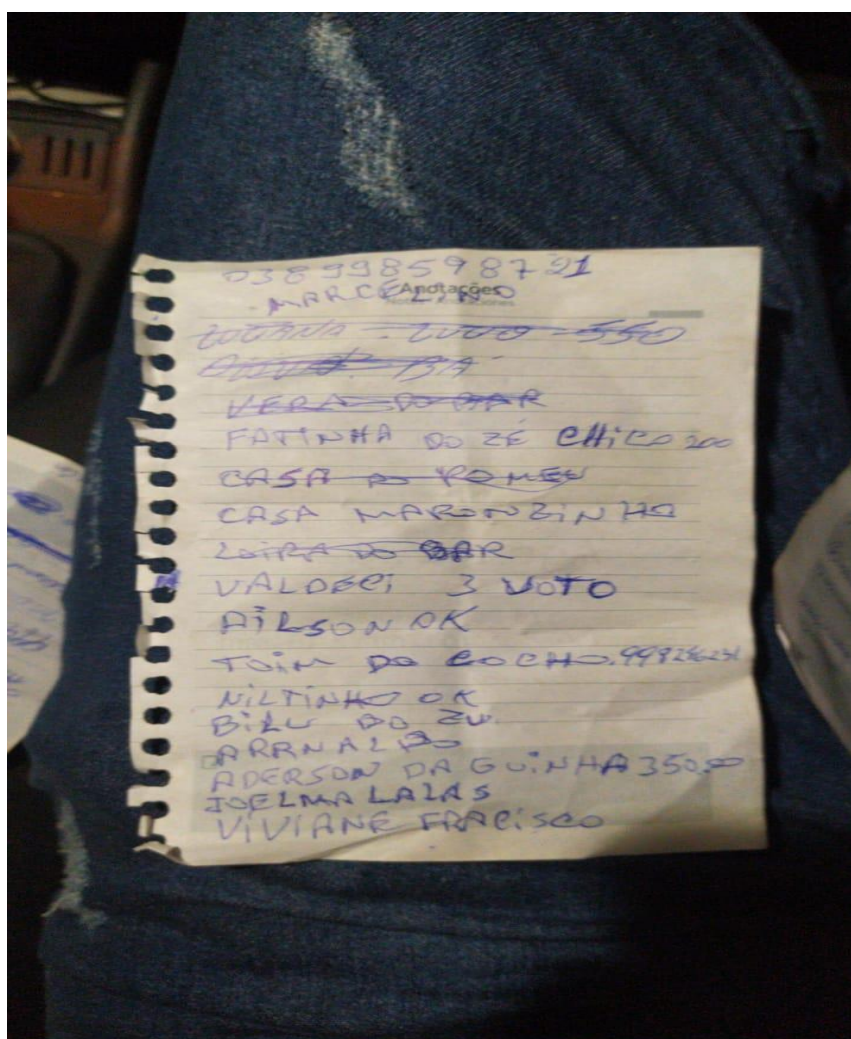 03899859 87 21
Anotações
MARCELINO
550
VERA DO BAR
FATINHA DO ZÉ CHICO 200
CASA DO ROMEU
CASA MARONZINHO
LOIRA DO BAR
VALDECI 3 VOTO
AILSON OK
TOIM DO COCHO.
NILTINHO OK
BILU DO ZU.
ARRNALDO
ADERSON DA GUINHA 350,00
JOELMA LALAS
VIVIANE FRACISCO